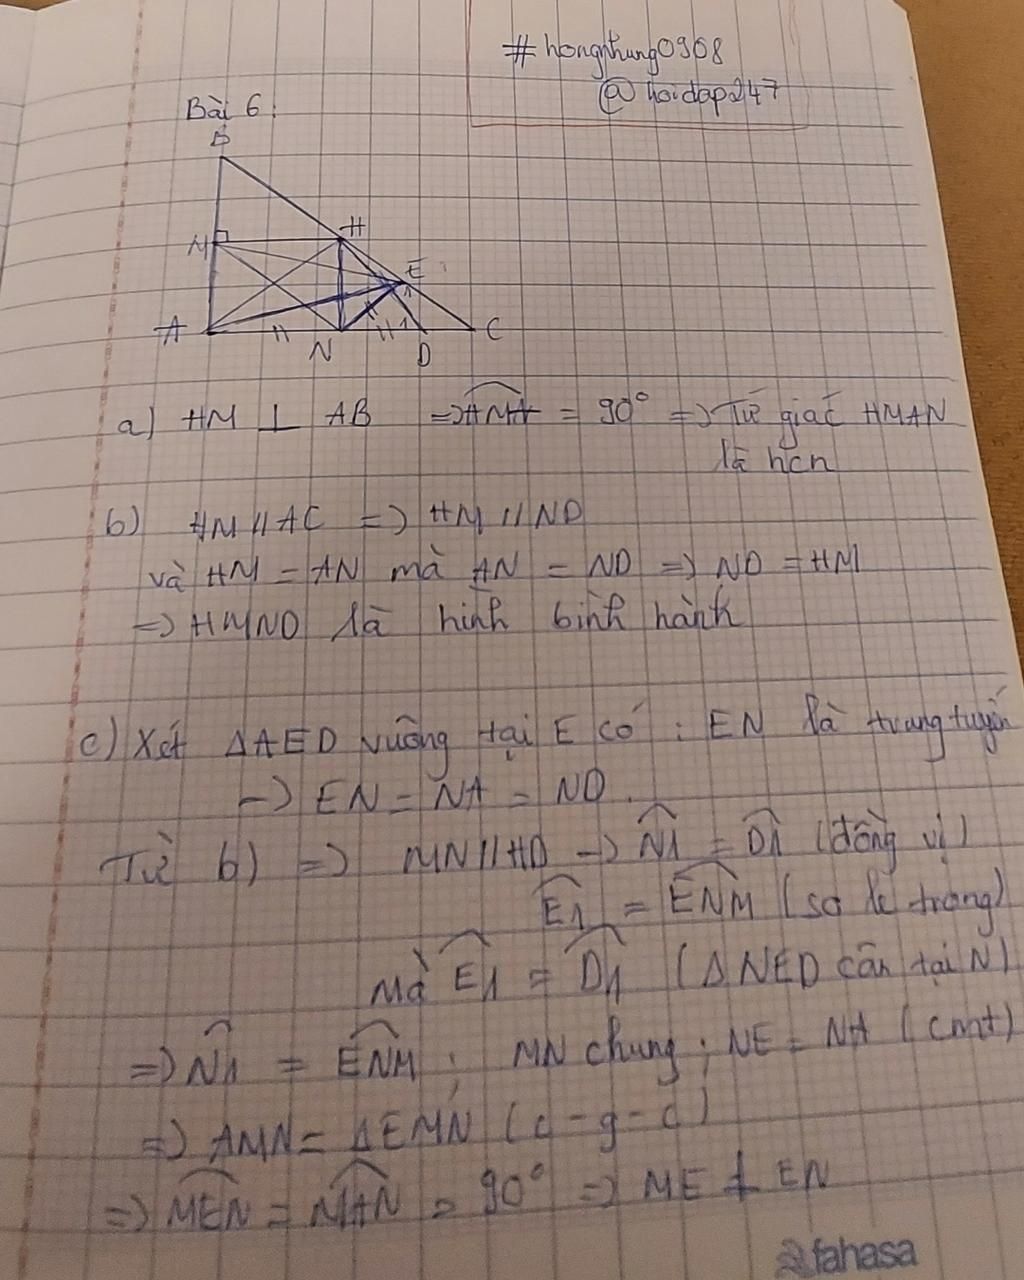 # hongnhung0908
@hoidap247
Bài 6:
B
M
H
E
1
A
N
1
D
C
a) HM ⊥ AB ⇒ \widehat{HMA} = 90° ⇒ Tứ giác HMAN
là hcn
b) HM // AC ⇒ HM // ND
và HM = AN mà AN = ND ⇒ ND = HM
⇒ HMND là hình bình hành
c) Xét ΔAED vuông tại E có : EN là trung tuyến
⇒ EN = NA = ND.
Từ b) ⇒ MN // HD → \widehat{N1} = \widehat{D1} (đồng vị)
\widehat{E1} = \widehat{ENM} (so le trong)
Mà \widehat{E1} = \widehat{D1} (Δ NED cân tại N)
⇒ \widehat{N1} = \widehat{ENM} ; MN chung ; NE = NA (cmt)
⇒ AMN = ΔEMN (c-g-c)
⇒ \widehat{MEN} = \widehat{MAN} = 90° ⇒ ME ⊥ EN
fahasa